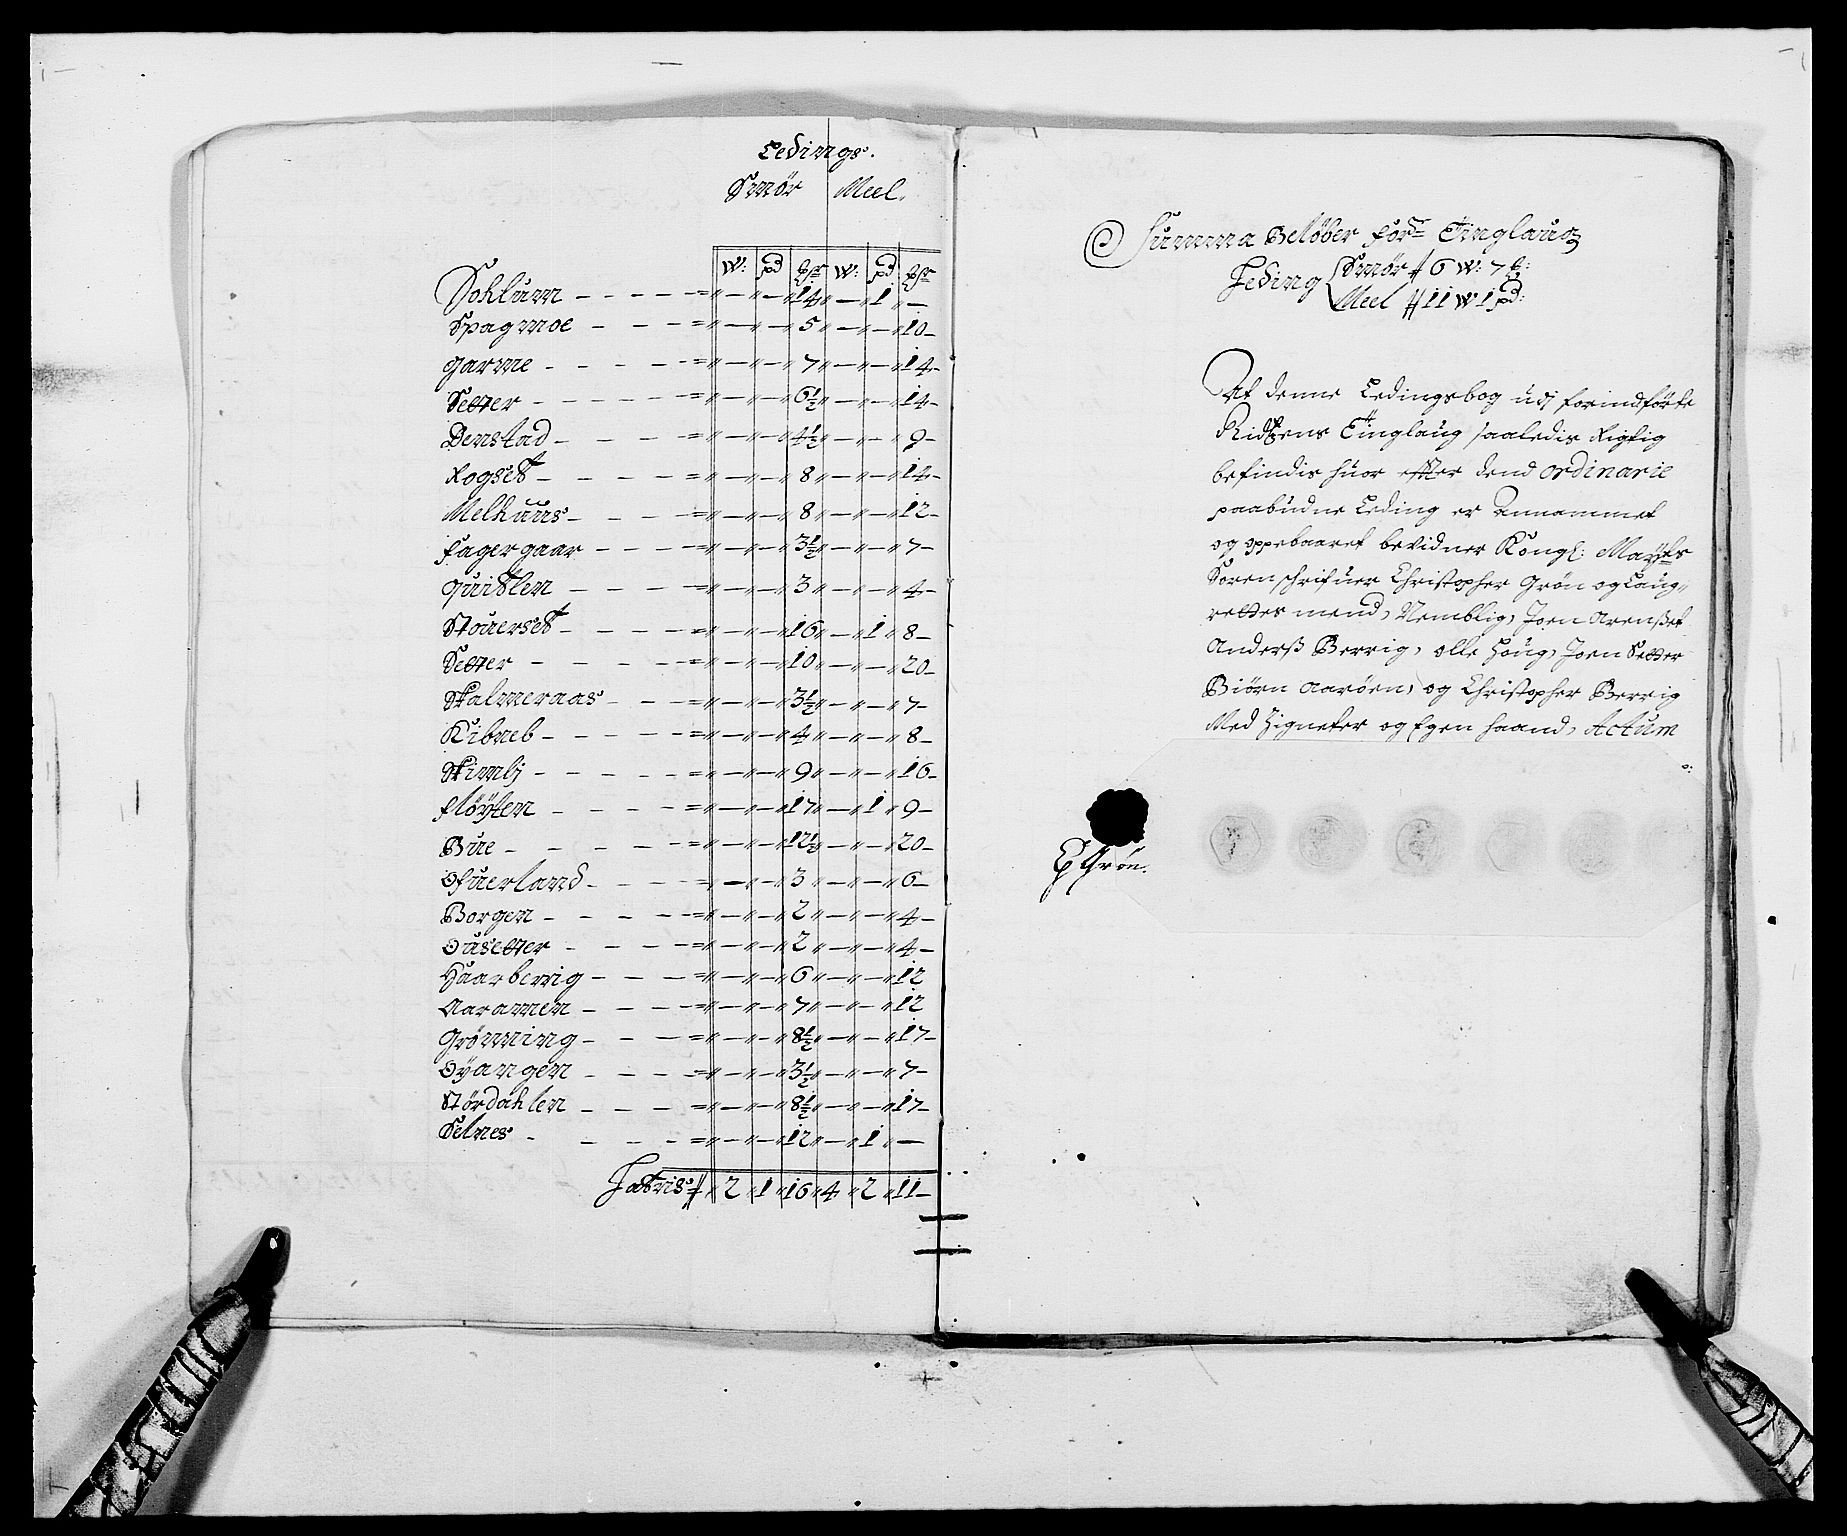 Ledings.
Smör Meel.
W: pd ℔ W: pd ℔
Sohlum - - - - - = " — " — " 14 " — " 1 " —
Spagmoe - - - - = " — " — " 5 " — " — " 10 -
Garme - - - - - = " — " — " 7 " — " — " 14 -
Setter - - - - - = " — " — " 6½ " — " — " 14 -
Denstad - - - - = " — " — " 4½ " — " — " 9 -
Rogset - - - - - = " — " — " 8 " — " — " 14 -
Melhuus - - - - = " — " — " 8 " — " — " 12 -
Fagergaar - - - - = " — " — " 3½ " — " — " 7 -
Quislen - - - - = " — " — " 3 " — " — " 4 -
Stouerset - - - - = " — " — " 16 " — " 1 " 8 -
Setter - - - - - = " — " — " 10 " — " — " 20 -
Skalmeraas - - - = " — " — " 3½ " — " — " 7 -
Kibneb - - - - - = " — " — " 4 " — " — " 8 -
Skimlj - - - - - = " — " — " 9 " — " — " 16 -
Fløyten - - - - - = " — " — " 17 " — " 1 " 9 -
Bue - - - - - = " — " — " 12½ " — " — " 20 -
Ofuerland - - - - = " — " — " 3 " — " — " 6 -
Borgen - - - - = " — " — " 2 " — " — " 4 -
Ousetter - - - - = " — " — " 2 " — " — " 4 -
Haarberrig - - - - = " — " — " 6 " — " — " 12
Aaramen - - - - = " — " — " 7 " — " — " 12
Grønning - - - - = " — " — " 8½ " — " — " 17 -
Oyangen - - - - = " — " — " 3½ " — " — " 7 -
Stördahlen - - - - = " — " — " 8½ " — " — " 17 -
Selnes - - - - - = " — " — " 12 " — " 1 " —
Latris " 2 " 1 " 16 " 4 " 2 " 11 -
Summa Beløber for Tinglaug
Leding Smör 6 W: 7 ℔:
Meel 11 W 1 pd:
Att denne Ledingsbog udj forindförte
Tinglaug saaledis Rigtig
befindis huor effter dend ordinarie
paabudne Leding er Annammet
og oppebaaret bevidner Kongl: Maÿts
Sorenschrifuer Christopher Grön og Laug,,
rettes mend, Nemblig, Joen Arenset
Anderß Berrig, olle Houg, Joen Setter
Biörn Aaröen, og Christopher Berrig
Med Zigneter og Egen haand, Actum
C Grön.